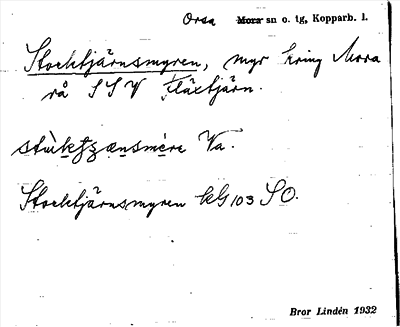 Orsa Mora sn o. tg, Kopparb. l.
Stocktjärnsmyren, myr kring Mora
rå SSV Fläxtjärn.
Va.
Stocktjärnsmyren kG 103 SO.
Bror Lindén 1932